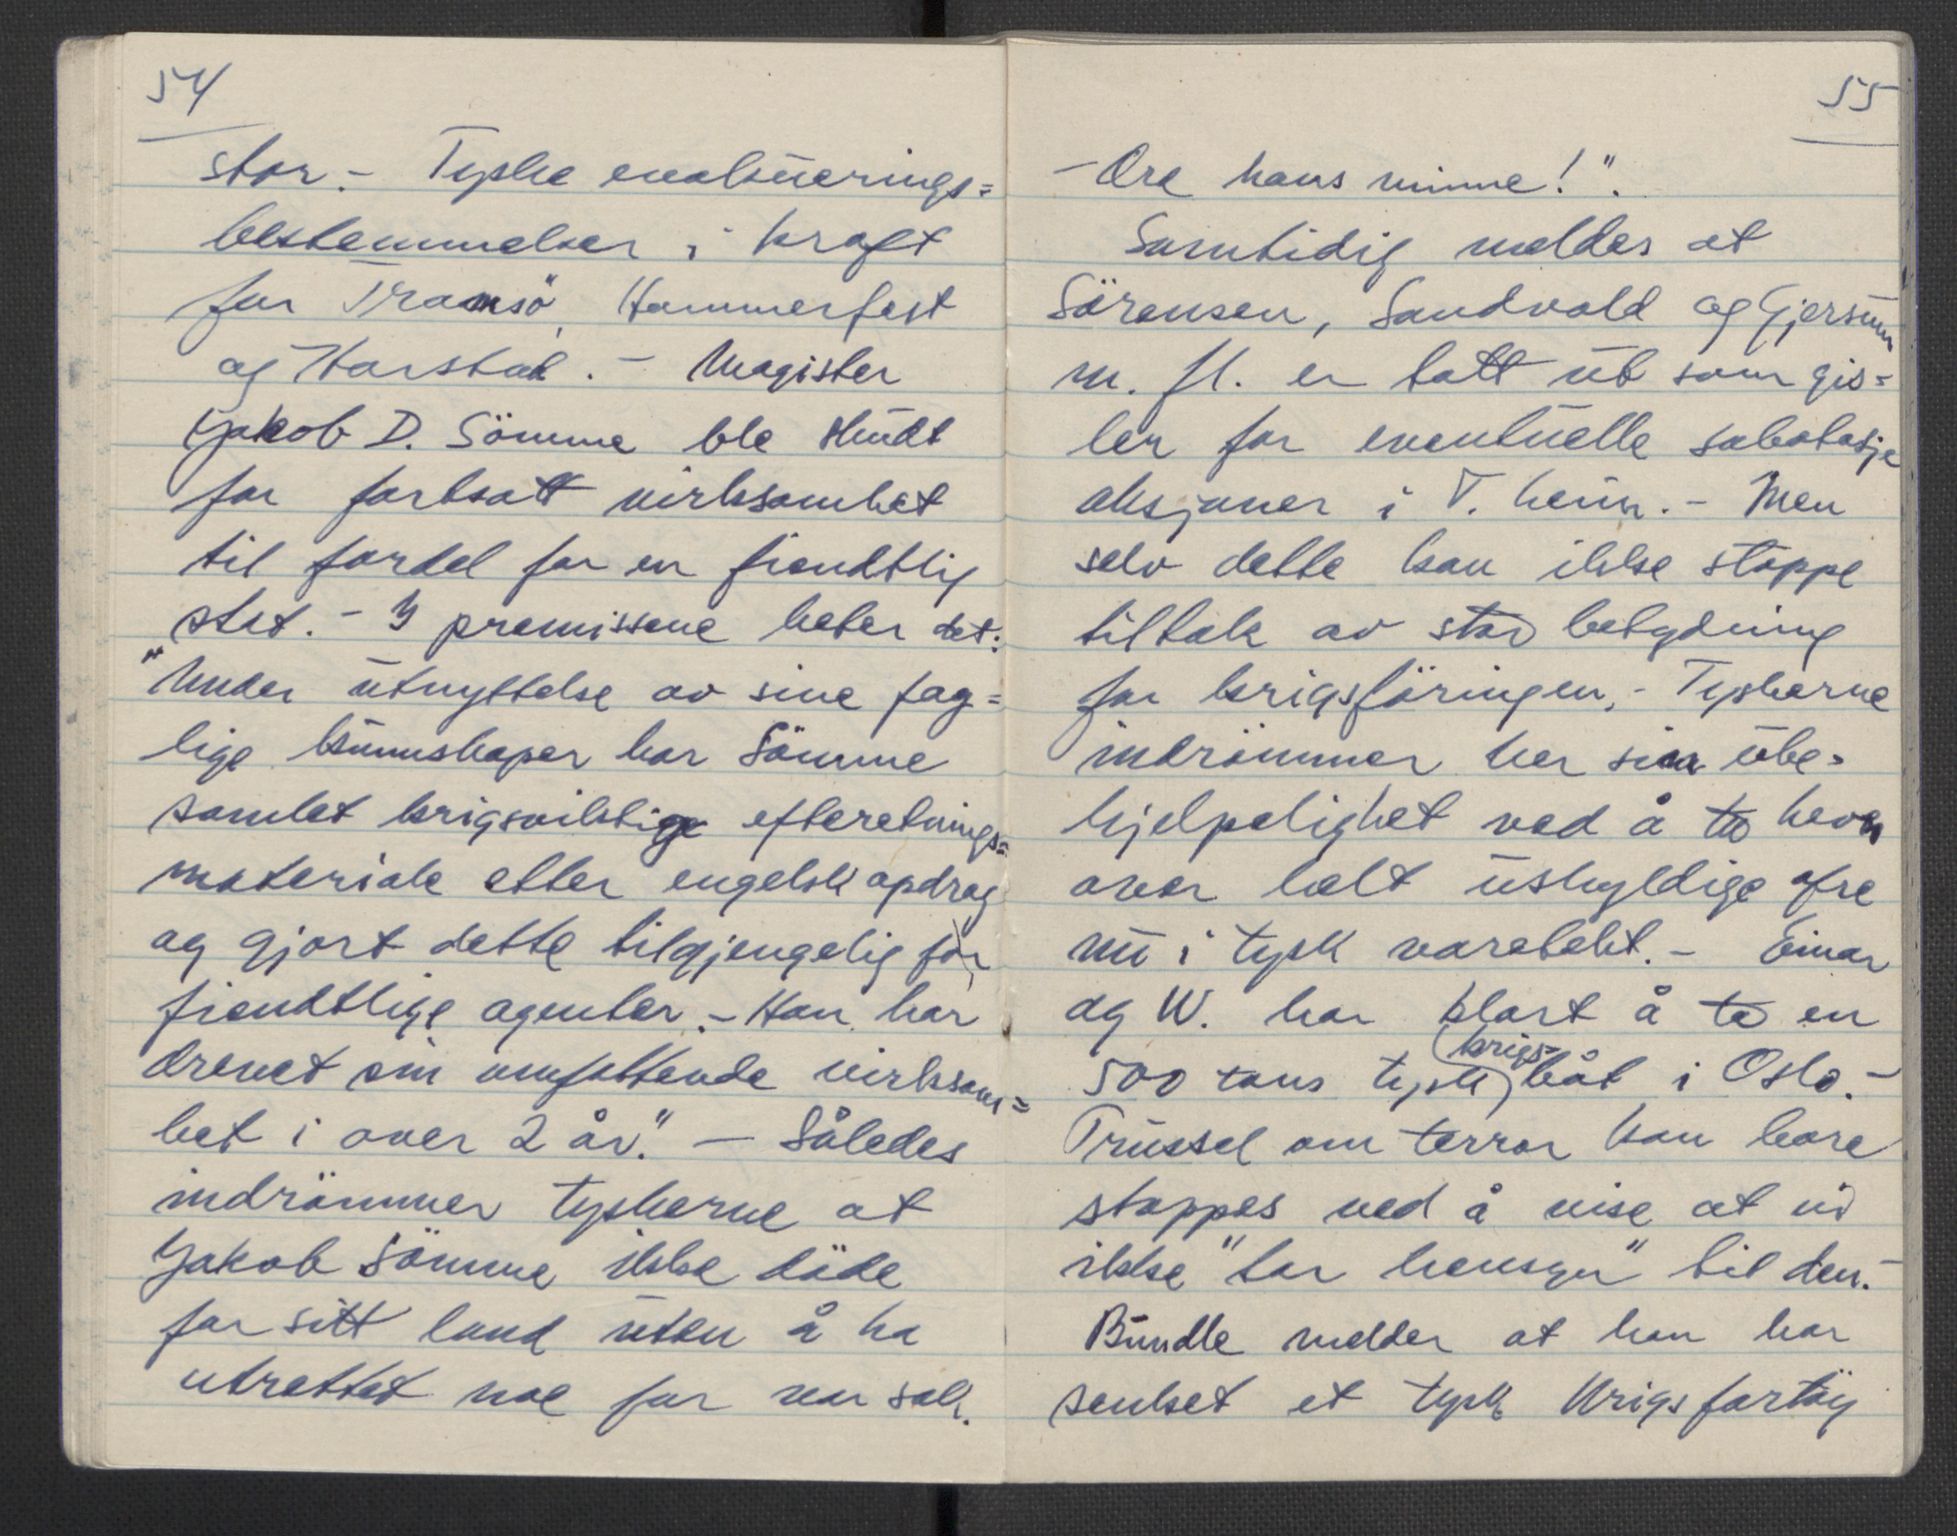 54
stor. - Tyske evakuerings=
bestemmelser i kraft
for Tromsö, Hammerfest
og Harstad. - Magister
Jakob D. Sömme ble skudt
for fortsatt virksomhet
til fordel for en fiendtlig
stat. - I premissene heter det:
"Under utnyttelse av sine fag=
lige kunnskaper har Sömme
samlet krigsviktige efteretnings=
materiale etter engelsk opdrag
og gjort dette tilgjengelig for
fiendtlige agenter. - Han har
drevet sin omfattende virksom=
het i over 2 år." - Således
indrömmer tyskerne at
Jakob Sömme ikke döde
for sitt land uten å ha
utrettet noe for vor sak.
55
- Ære hans minne!".
Samtidig meldes at
Sörensen, Sandvold og Gjersum
m. fl. er tatt ut som gis=
ler for eventuelle sabotasje
aksjoner i T. heim. - Men
selv dette kan ikke stoppe
tiltak av stor betydning
for krigsföringen. - Tyskerne
indrömmer her sin ube=
hjelpelighet ved å ta hevn
over helt uskyldige ofre
nu i tysk varetekt. - Einar
og W. har klart å ta en
500 tons tysk krigs- båt i Oslo. -
Trussel om terror kan bare
stoppes ved å vise at vi
ikke "tar hensyn" til den. -
Bundle melder at han har
senket et tysk krigsfartöy